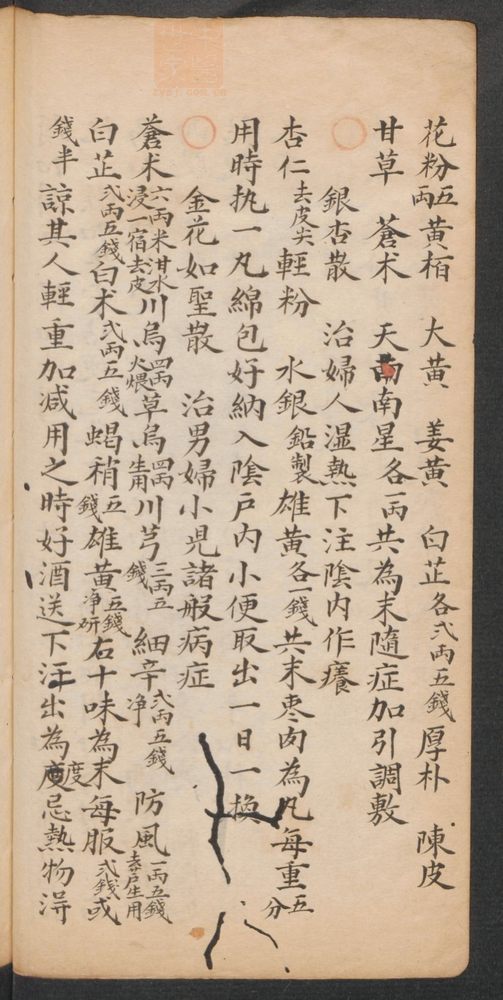 花粉五両黄栢 大黄 姜黄 白芷各弍両五錢厚朴 陳皮
甘草 蒼术 天南南星各一両共為末隨症加引調敷
○ 銀杏散 治婦人湿熱下注陰内作癢
杏仁去皮尖 輕粉 水銀鉛製雄黄各一錢共末棗肉為丸每重五分
用時执一丸綿包好納入陰戶内小便取出一日一換
○ 金花如聖散 治男婦小児諸般病症
蒼术六両米泔水浸一宿去皮川烏四両火煨草烏四両生用川芎三両五錢 細辛弍両五錢净 防風一両五錢去芦生用
白芷弍両五錢白术弍両五錢 蝎稍五錢雄黄五錢净研右十味為末每服弍錢或
錢半 諒其人輕重加減用之時好酒送下汗出為度忌熱物浔
zysj.com.cn